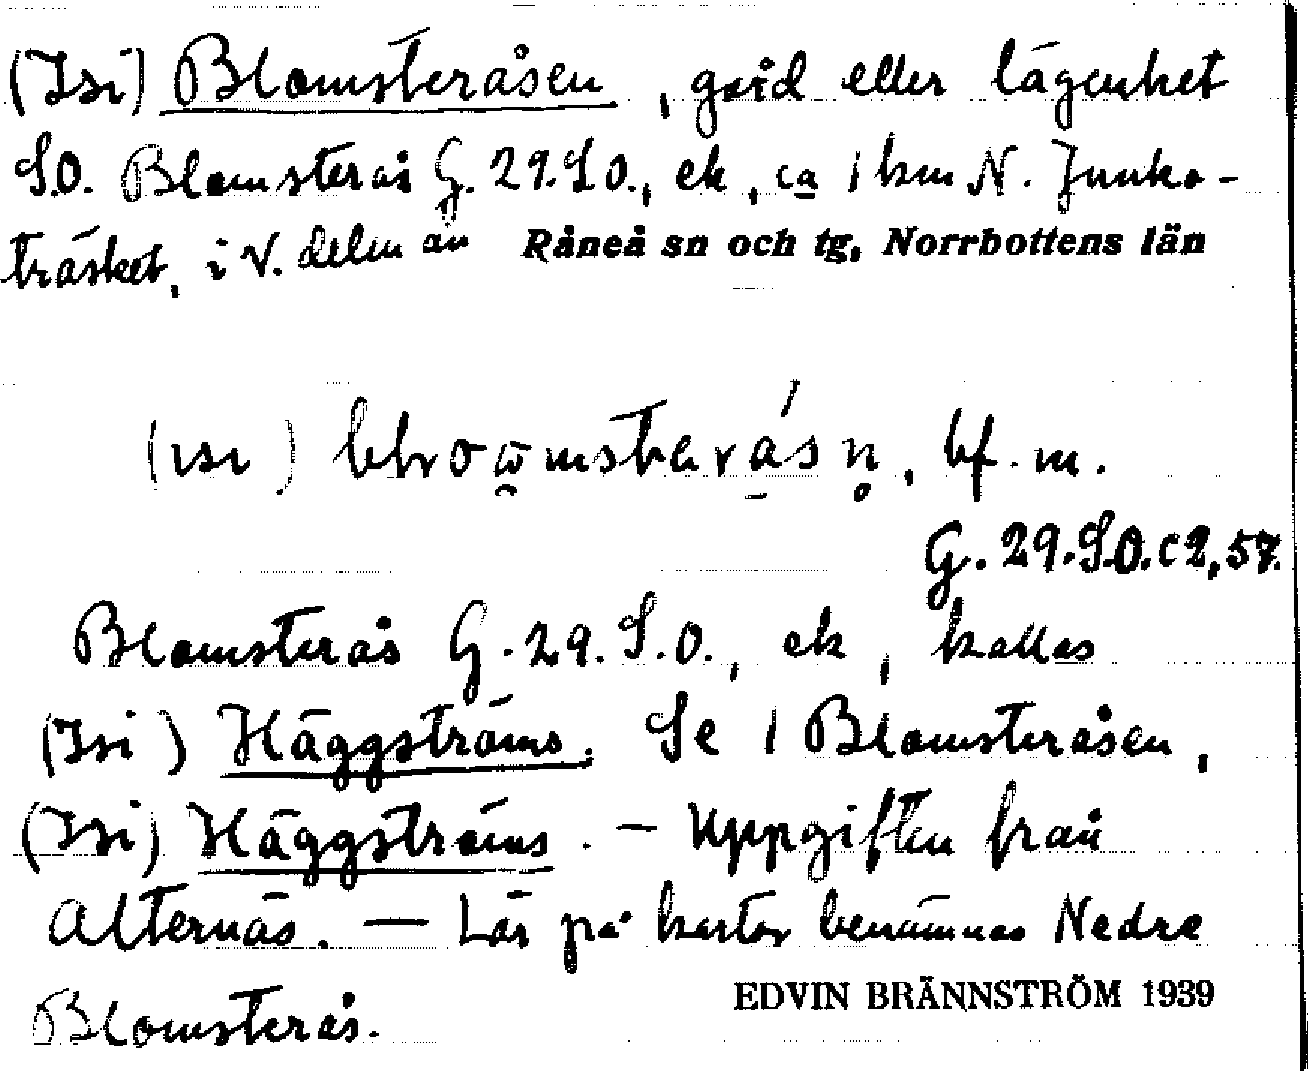 (Isi) Blomsteråsen, gård eller lägenhet
S.O. Blomsterås G. 29. S.O., ek, ca 1 km N. Junko-
träsket, i V. delen av Råneå sn och tg, Norrbottens län
(ısı) bf. m.
G. 29. S.O. c 2, 57.
Blomsterås G. 29. S.O., ek, kallas
(Isi) Häggströms. Se 1 Blomsteråsen,
(Isi) Häggströms. — Uppgiften från
Alternäs. — Lär på kartor benämnas Nedre
Blomsterås.
EDVIN BRÄNNSTRÖM 1939